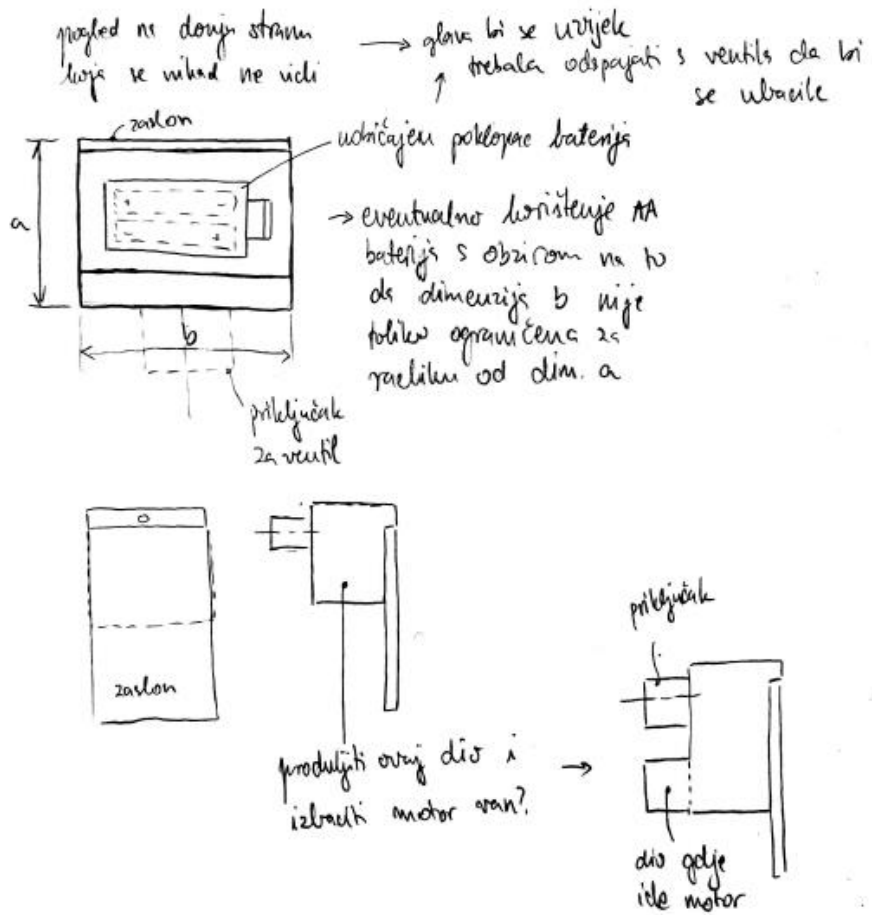 pogled na donju stranu
koja se nikad ne vidi
→ glava bi se uvijek
trebala odspajati s ventila da bi
se ubacile
zaslon
uobičajeni poklopac baterija
a
→ eventualno korištenje AA
baterija s obzirom na to
da dimenzija b nije
toliko ograničena za
razliku od dim. a
b
priključak
za ventil
zaslon
produljiti ovaj dio i
izbaciti motor van?
→
priključak
dio gdje
ide motor